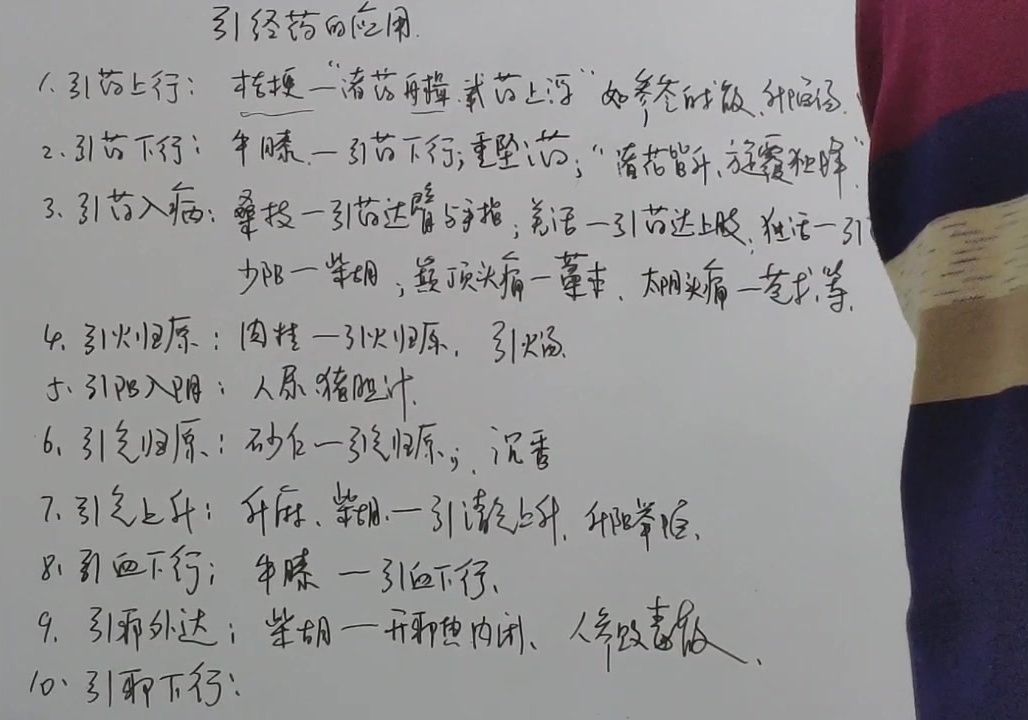 引经药的应用.
1. 引药上行： 桔梗一“诸药舟楫、载药上浮” 如参苓白术散、升陷汤.
2. 引药下行： 牛膝.一引药下行；重坠药；“诸花皆升，旋覆独降”.
3. 引药入病： 桑枝一引药达臂与手指；羌活一引药达上肢、独活一引
少阳一柴胡；巅顶头痛一藁本、太阴头痛一苍术、等.
4. 引火归原： 肉桂一引火归原. 引火汤.
5. 引阳入阴： 人尿.猪胆汁.
6. 引气归原： 砂仁一引气归原；、沉香
7. 引气上升： 升麻、柴胡.一引清气上升、升阳举陷.
8. 引血下行； 牛膝 一引血下行、
9. 引邪外达； 柴胡一开邪热内闭、人参败毒散、
10. 引邪下行：